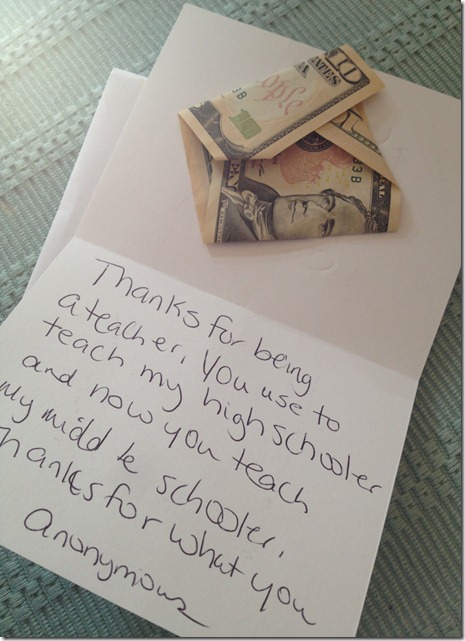 10
ATES
people
3 B
10
33 B
Thanks for being
a teacher. You use to
teach my highschooler
and now you teach
my middle schooler.
Thanks for what you
Anonymous